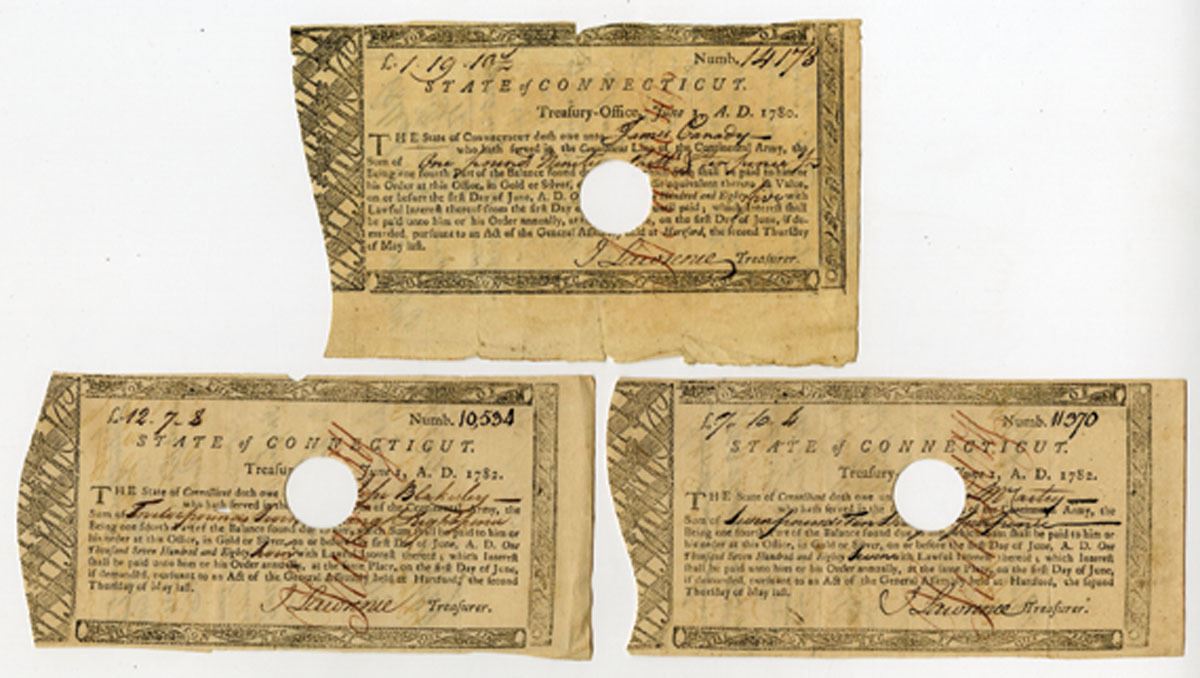 £ 1 . 19 . 10 ½ Numb. 14178
STATE of CONNECTICUT.
Treasury-Office, June 1, A. D. 1780.
THE State of CONNECTICUT doth owe unto James Canady
who hath served in the Connecticut Line of the Continental Army, the
Sum of One pound Nineteen pence
Being one fourth Part of the Balance found shall be paid to him or
his Order at this Office, in Gold or Silver, equivalent thereto in Value,
on or before the first Day of June, A. D. Hundred and Eighty five with
Lawful Interest thereof from the first Day of paid; which Interest shall
be paid unto him or his Order annually, at on the first Day of June, if de-
manded, pursuant to an Act of the General Assembly held at Hartford, the second Thursday
of May last.
J Lawrence Treasurer.
£ 12 . 7 . 8 Numb. 10,534
STATE of CONNECTICUT.
June 1, A. D. 1782.
THE State of Connecticut doth owe Blakesley
who hath served in the of the Continental Army, the
Sum of Twelve pounds
Being one fourth Part of the Balance found due shall be paid to him or
his order at this Office, in Gold or Silver, on or before the first Day of June, A. D. One
Thousand Seven Hundred and Eighty with Lawful Interest thereof; which Interest
shall be paid unto him or his Order annually, at the same Place, on the first Day of June,
if demanded, pursuant to an Act of the General Assembly held at Hartford, the second
Thursday of May last.
J Lawrence Treasurer.
£ 7 . 10 . 4 Numb. 11370
STATE of CONNECTICUT.
Treasury June 1, A. D. 1782.
THE State of Connecticut doth owe
who hath served in the Continental Army, the
Sum of Seven pounds Ten
Being one fourth Part of the Balance found due shall be paid to him or
his order at this Office, in Gold or Silver, on or before the first Day of June, A. D. One
Thousand Seven Hundred and Eighty with Lawful Interest thereof; which Interest
shall be paid unto him or his Order annually, at the same Place, on the first Day of June,
if demanded, pursuant to an Act of the General Assembly held at Hartford, the second
Thursday of May last.
J Lawrence Treasurer.